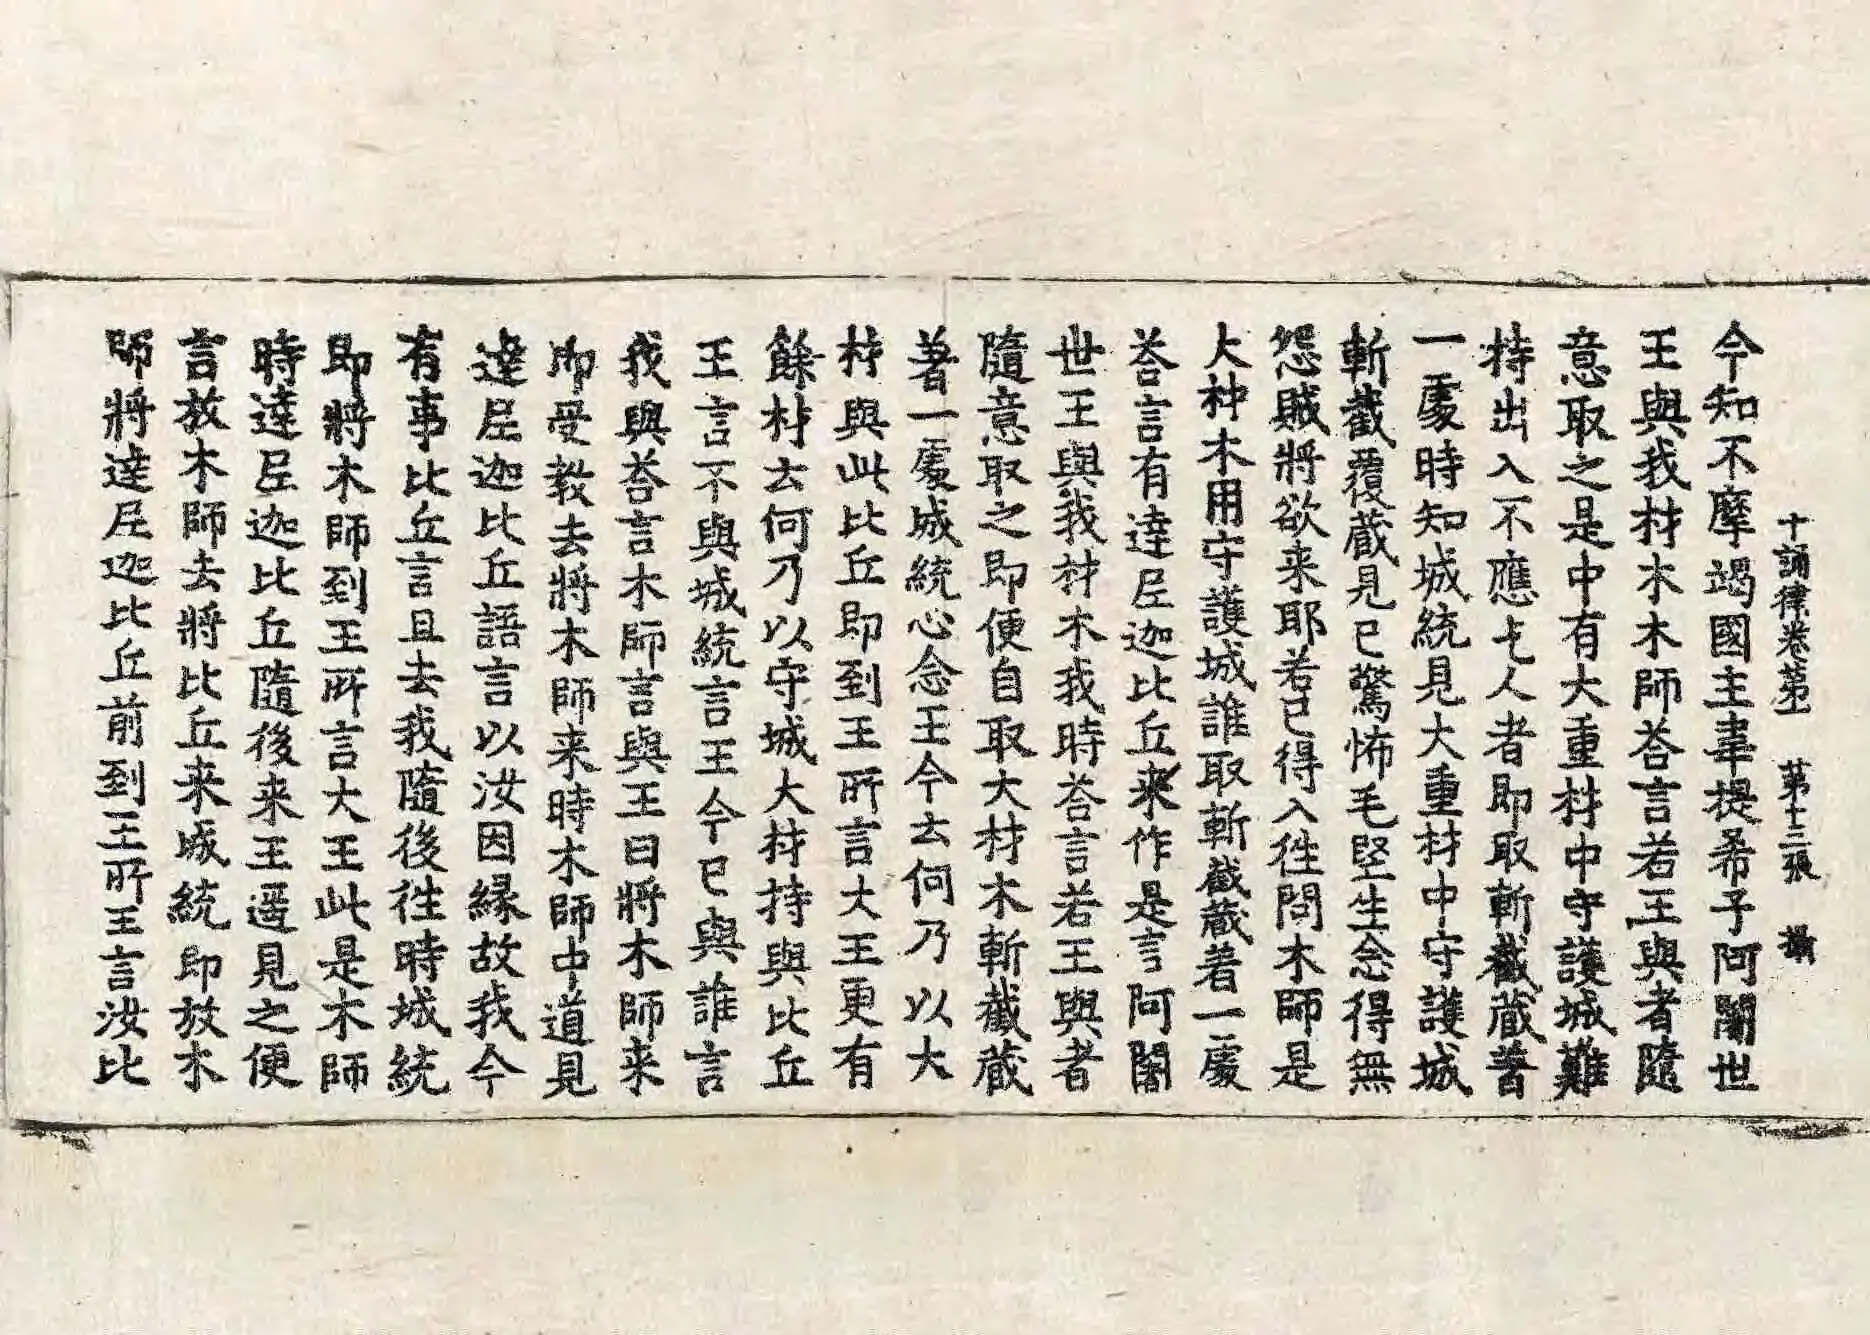 十誦律卷第一　第十三張　攝
今知不摩竭國主韋提希子阿闍世
王與我材木木師荅言若王與者隨
意取之是中有大重材中守護城難
持出入不應乇人者即取斬截藏著
一處時知城統見大重材中守護城
斬截覆藏見已驚怖毛竪生念得無
怨賊將欲来耶若已得入徃問木師是
大材木用守護城誰取斬截藏著一處
荅言有達尼迦比丘來作是言阿闍
世王與我材木我時荅言若王與者
隨意取之即便自取大材木斬截藏
著一處城統心念王今云何乃以大
材與此比丘即到王所言大王更有
餘材去何乃以守城大材持與比丘
王言不與城統言王今已與誰言
我與荅言木師言與王曰將木師来
即受教去將木師来時木師中道見
達尼迦比丘語言以汝因縁故我今
有事比丘言且去我隨後徃時城統
即將木師到王所言大王此是木師
時達尼迦比丘隨後来王遥見之便
言放木師去將比丘来城統即放木
師將達尼迦比丘前到王所王言汝比